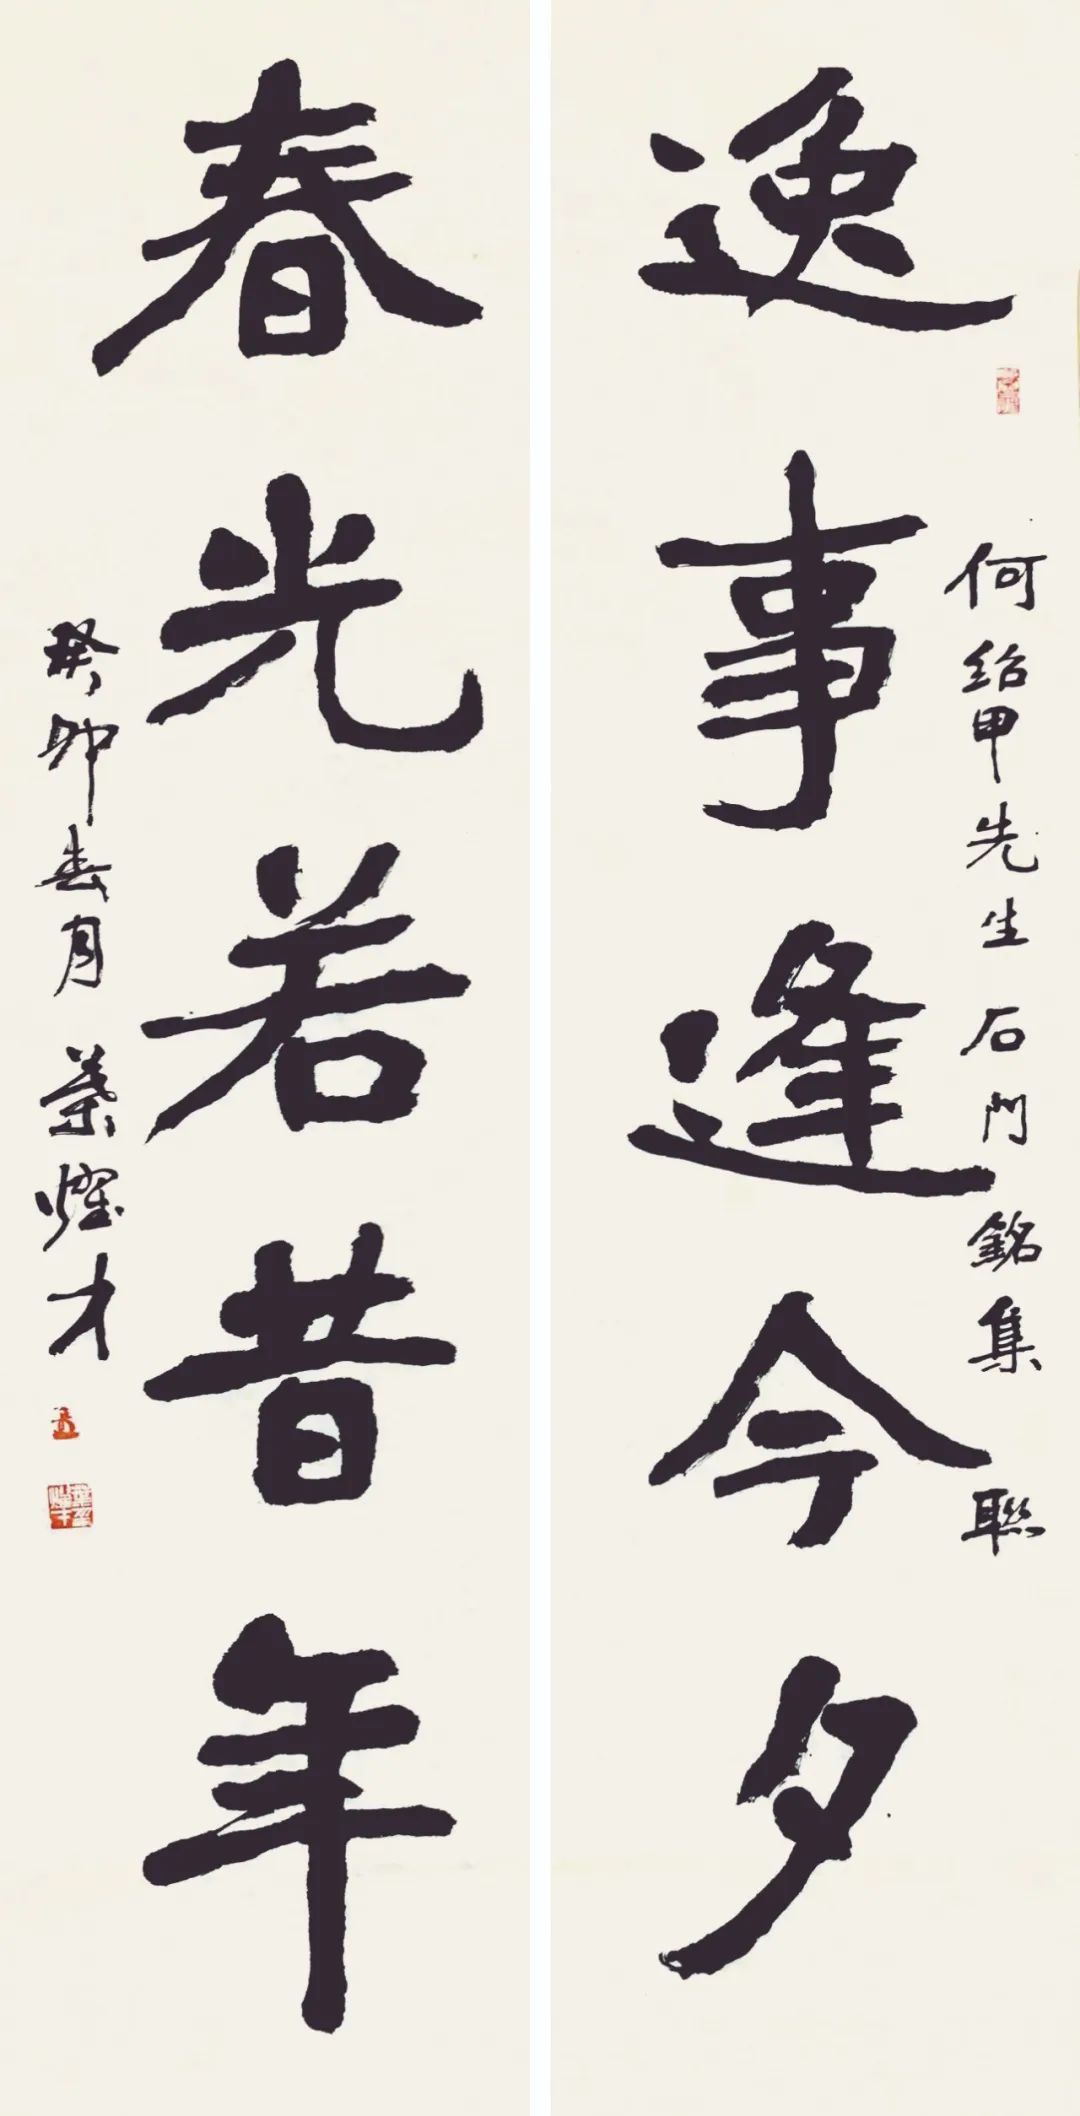 逸事逢今夕
何紹甲先生石門銘集聯
春光若昔年
癸卯春月葉燿才